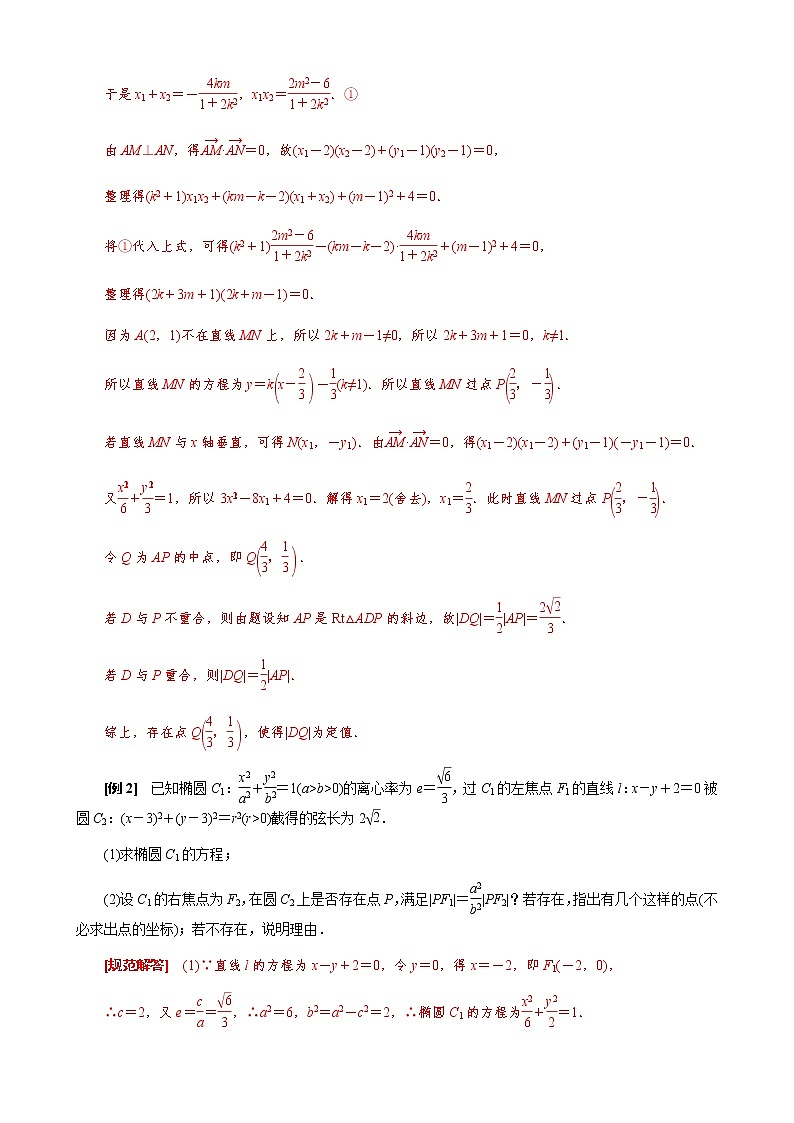 于是 x₁+x₂=-4km/(1+2k²), x₁x₂=(2m²-6)/(1+2k²). ①
由 AM⊥AN, 得AM→·AN→=0, 故(x₁-2)(x₂-2)+(y₁-1)(y₂-1)=0,
整理得(k²+1)x₁x₂+(km-k-2)(x₁+x₂)+(m-1)²+4=0.
将①代入上式, 可得(k²+1)(2m²-6)/(1+2k²)-(km-k-2)·4km/(1+2k²)+(m-1)²+4=0,
整理得(2k+3m+1)(2k+m-1)=0.
因为 A(2, 1)不在直线 MN 上, 所以 2k+m-1≠0, 所以 2k+3m+1=0, k≠1.
所以直线 MN 的方程为 y=k(x-2/3)-1/3(k≠1). 所以直线 MN 过点 P(2/3, -1/3).
若直线 MN 与 x 轴垂直, 可得 N(x₁, -y₁). 由AM→·AN→=0, 得(x₁-2)(x₁-2)+(y₁-1)(-y₁-1)=0.
又x₁²/6+y₁²/3=1, 所以 3x₁²-8x₁+4=0. 解得 x₁=2(舍去), x₁=2/3. 此时直线 MN 过点 P(2/3, -1/3).
令 Q 为 AP 的中点, 即 Q(4/3, 1/3).
若 D 与 P 不重合, 则由题设知 AP 是 Rt△ADP 的斜边, 故|DQ|=1/2|AP|=2√2/3.
若 D 与 P 重合, 则|DQ|=1/2|AP|.
综上, 存在点 Q(4/3, 1/3), 使得|DQ|为定值.
[例 2] 已知椭圆 C₁: x²/a²+y²/b²=1(a>b>0)的离心率为 e=√6/3, 过 C₁的左焦点 F₁的直线 l: x-y+2=0 被
圆 C₂: (x-3)²+(y-3)²=r²(r>0)截得的弦长为 2√2.
(1)求椭圆 C₁的方程;
(2)设 C₁的右焦点为 F₂, 在圆 C₂上是否存在点 P, 满足|PF₁|=a²/b²|PF₂|? 若存在, 指出有几个这样的点(不
必求出点的坐标); 若不存在, 说明理由.
[规范解答] (1)∵直线 l 的方程为 x-y+2=0, 令 y=0, 得 x=-2, 即 F₁(-2, 0),
∴c=2, 又 e=c/a=√6/3, ∴a²=6, b²=a²-c²=2, ∴椭圆 C₁的方程为x²/6+y²/2=1.